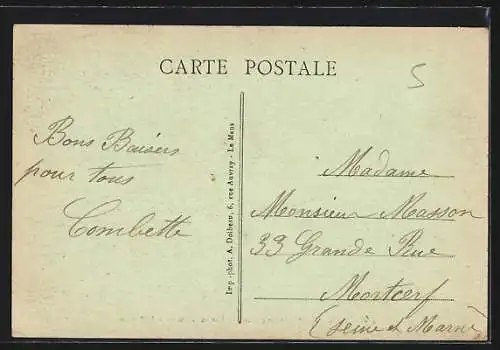 CARTE POSTALE
5
Bons Baisers
pour tous
Combette
Imp.-phot. A. Dolbeau, 6, rue Auvray - Le Mans
Madame
Monsieur Masson
33 Grande Rue
Mortcerf
(Seine et Marne)